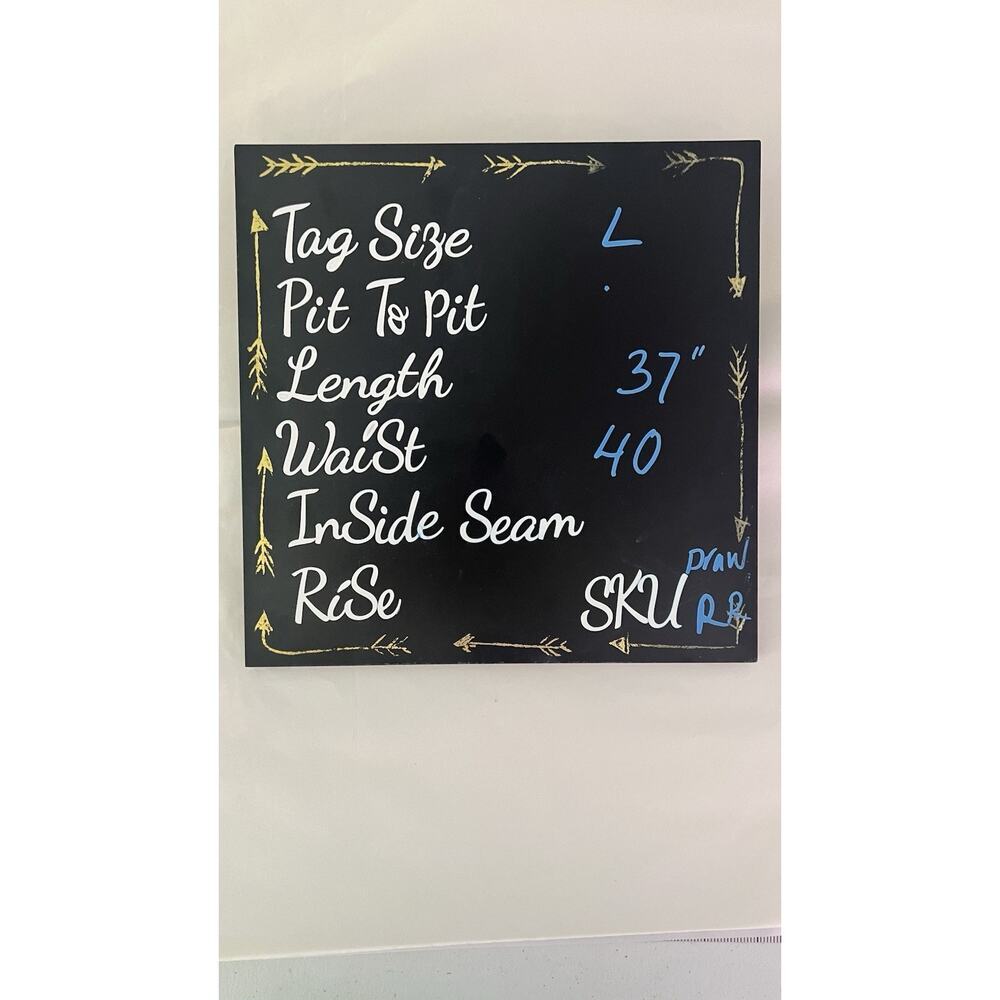 Tag Size L
Pit To Pit
Length 37"
Waist 40
InSide Seam
Draw
RiSe SKU RR